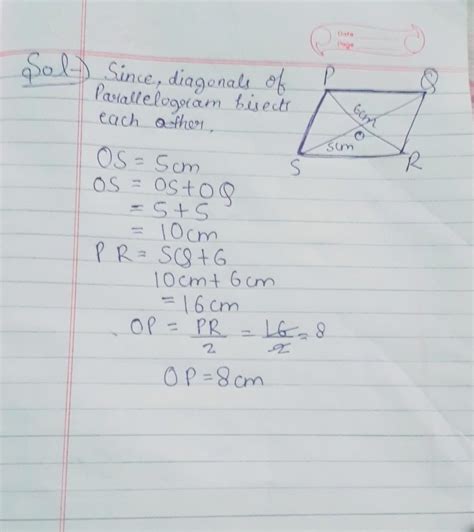 Data
Page
Sol-) Since, diagonals of
Parallelogram bisects
each other.
P
Q
6cm
O
5cm
S
R
OS = 5cm
OS = OS+OQ
= 5+5
= 10cm
PR = SQ+6
10cm+6cm
= 16cm
OP = PR/2 = 16/2 = 8
OP = 8cm